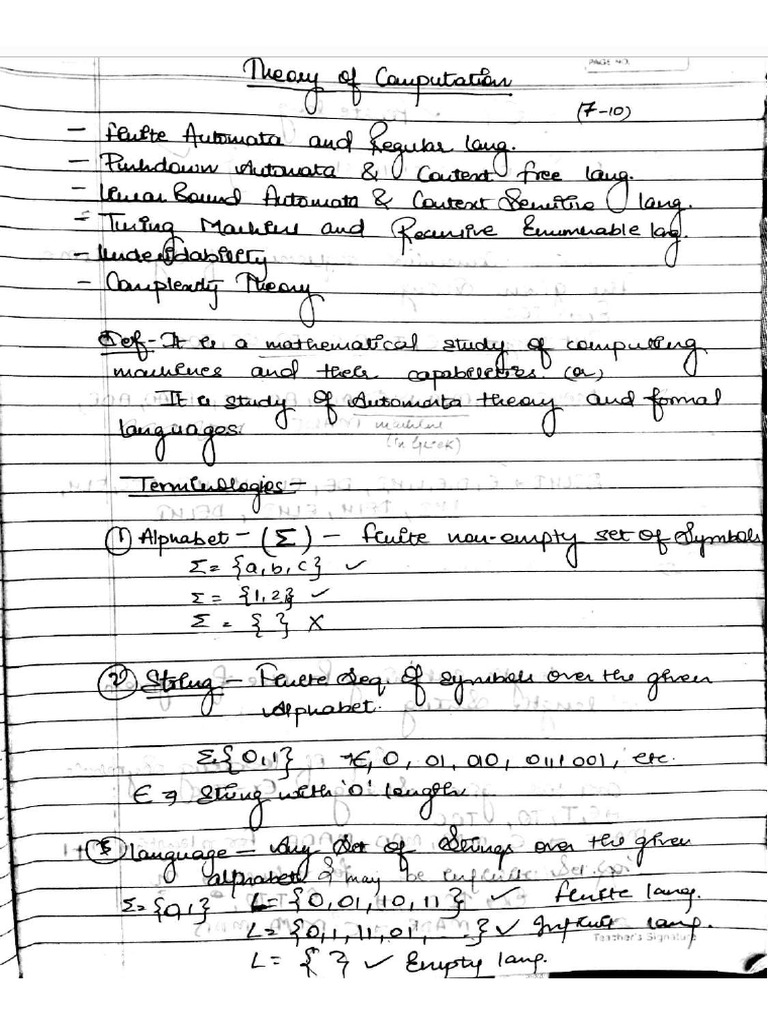 PAGE NO.
Theory of Computation
(7-10)
- Finite Automata and Regular lang.
- Pushdown Automata & Context free lang.
- Linear Bound Automata & Context Sensitive lang.
- Turing Machine and Recursive Enumerable lag.
- Undecidability
- Complexity Theory
Def - It is a mathematical study of computing
machines and their capabilities (or)
It is study of Automata theory and formal
languages.
machine
(in Greek)
Terminologies -
① Alphabet - (Σ) - finite non-empty set of Symbols
Σ = {a, b, c} ✓
Σ = {1, 2} ✓
Σ = { } X
② String - Finite Seq of symbols over the given
Alphabet.
Σ {0,1} → ϵ, 0, 01, 010, 0111001, etc.
ϵ → String with '0' length
③ language - Any Set of Strings over the given
alphabet & may be infinite Set
Σ = {0,1} L = {0, 01, 10, 11} ✓ finite lang.
L = {0, 1, 11, 01, ....} ✓ Infinite lang.
Teacher's Signature
L = { } ✓ Empty lang.